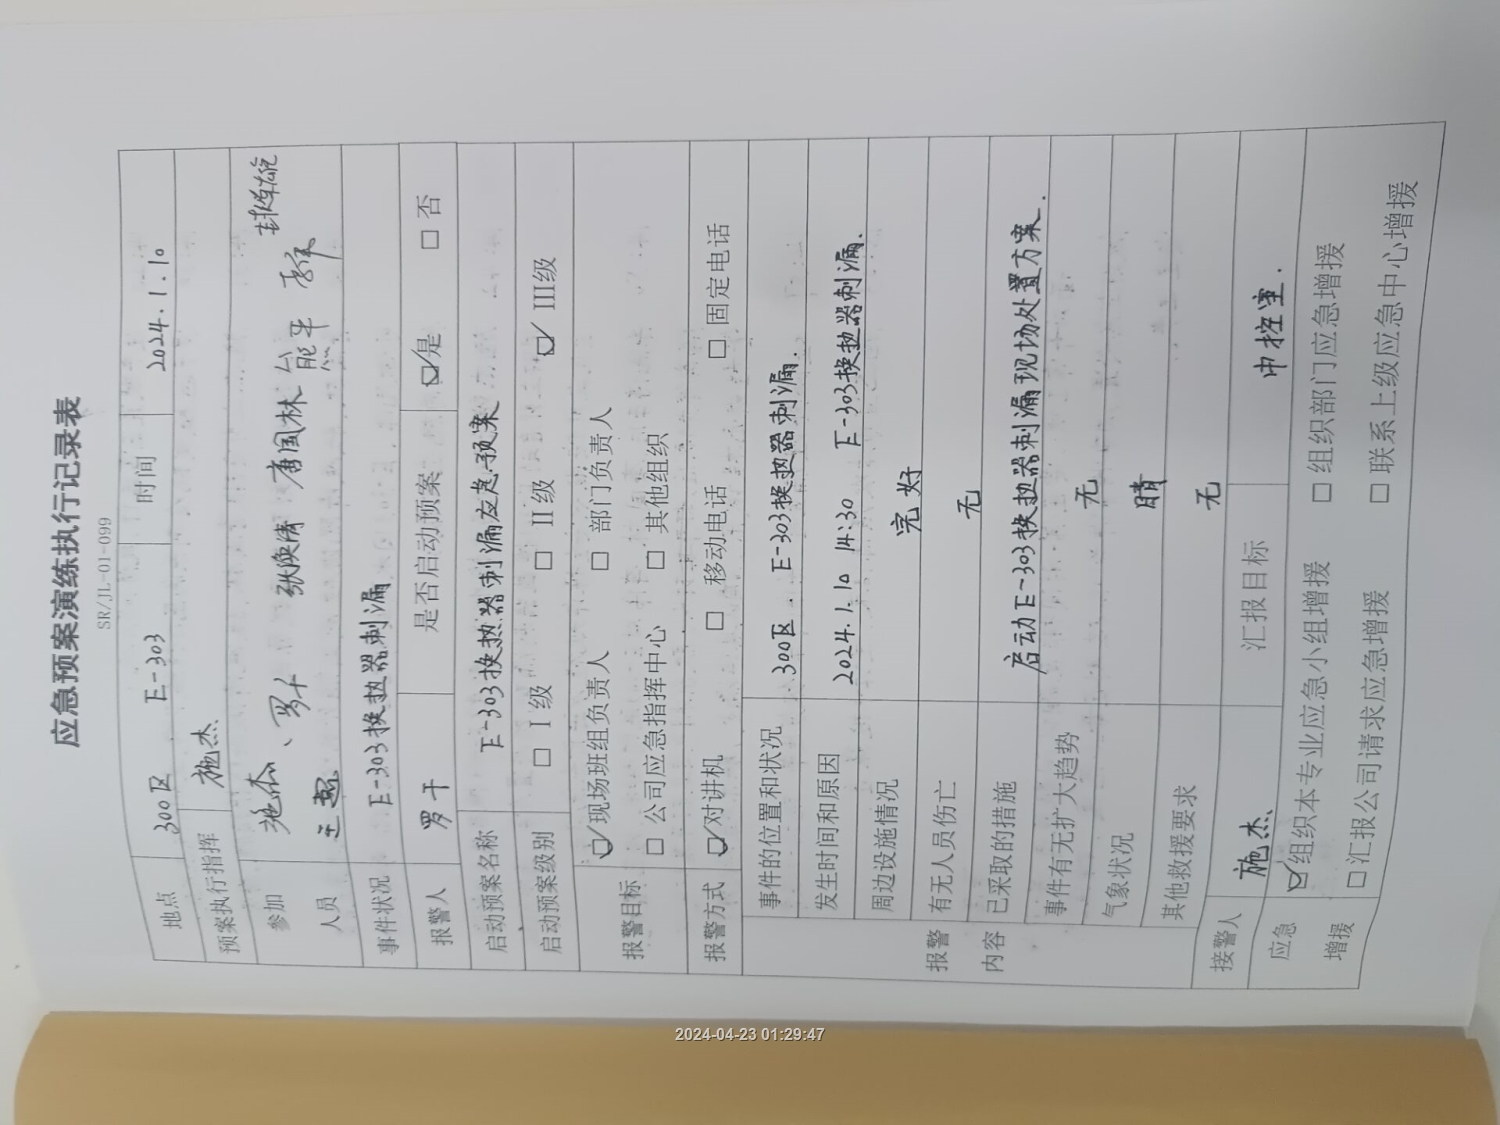 应急预案演练执行记录表
SR/JL-01-099
地点 300区 E-303 时间 2024.1.10
预案执行指挥 施杰
参加 施杰、罗 张焕清 唐国林 熊平
人员
事件状况 E-303换热器刺漏
报警人 罗干 是否启动预案 ☑是 □否
启动预案名称 E-303换热器刺漏应急预案
启动预案级别 □ I级 □ II级 ☑ III级
报警目标 ☑现场班组负责人 □ 部门负责人
□ 公司应急指挥中心 □ 其他组织
报警方式 ☑对讲机 □ 移动电话 □ 固定电话
报警
内容
事件的位置和状况 300区. E-303换热器刺漏.
发生时间和原因 2024.1.10 14:30 E-303换热器刺漏.
周边设施情况 完好
有无人员伤亡 无
已采取的措施 启动E-303换热器刺漏现场处置方案.
事件有无扩大趋势 无
气象状况 晴
其他救援要求 无
接警人 施杰 汇报目标 中控室.
应急
增援
☑组织本专业应急小组增援 □ 组织部门应急增援
□ 汇报公司请求应急增援 □ 联系上级应急中心增援
2024-04-23 01:29:47